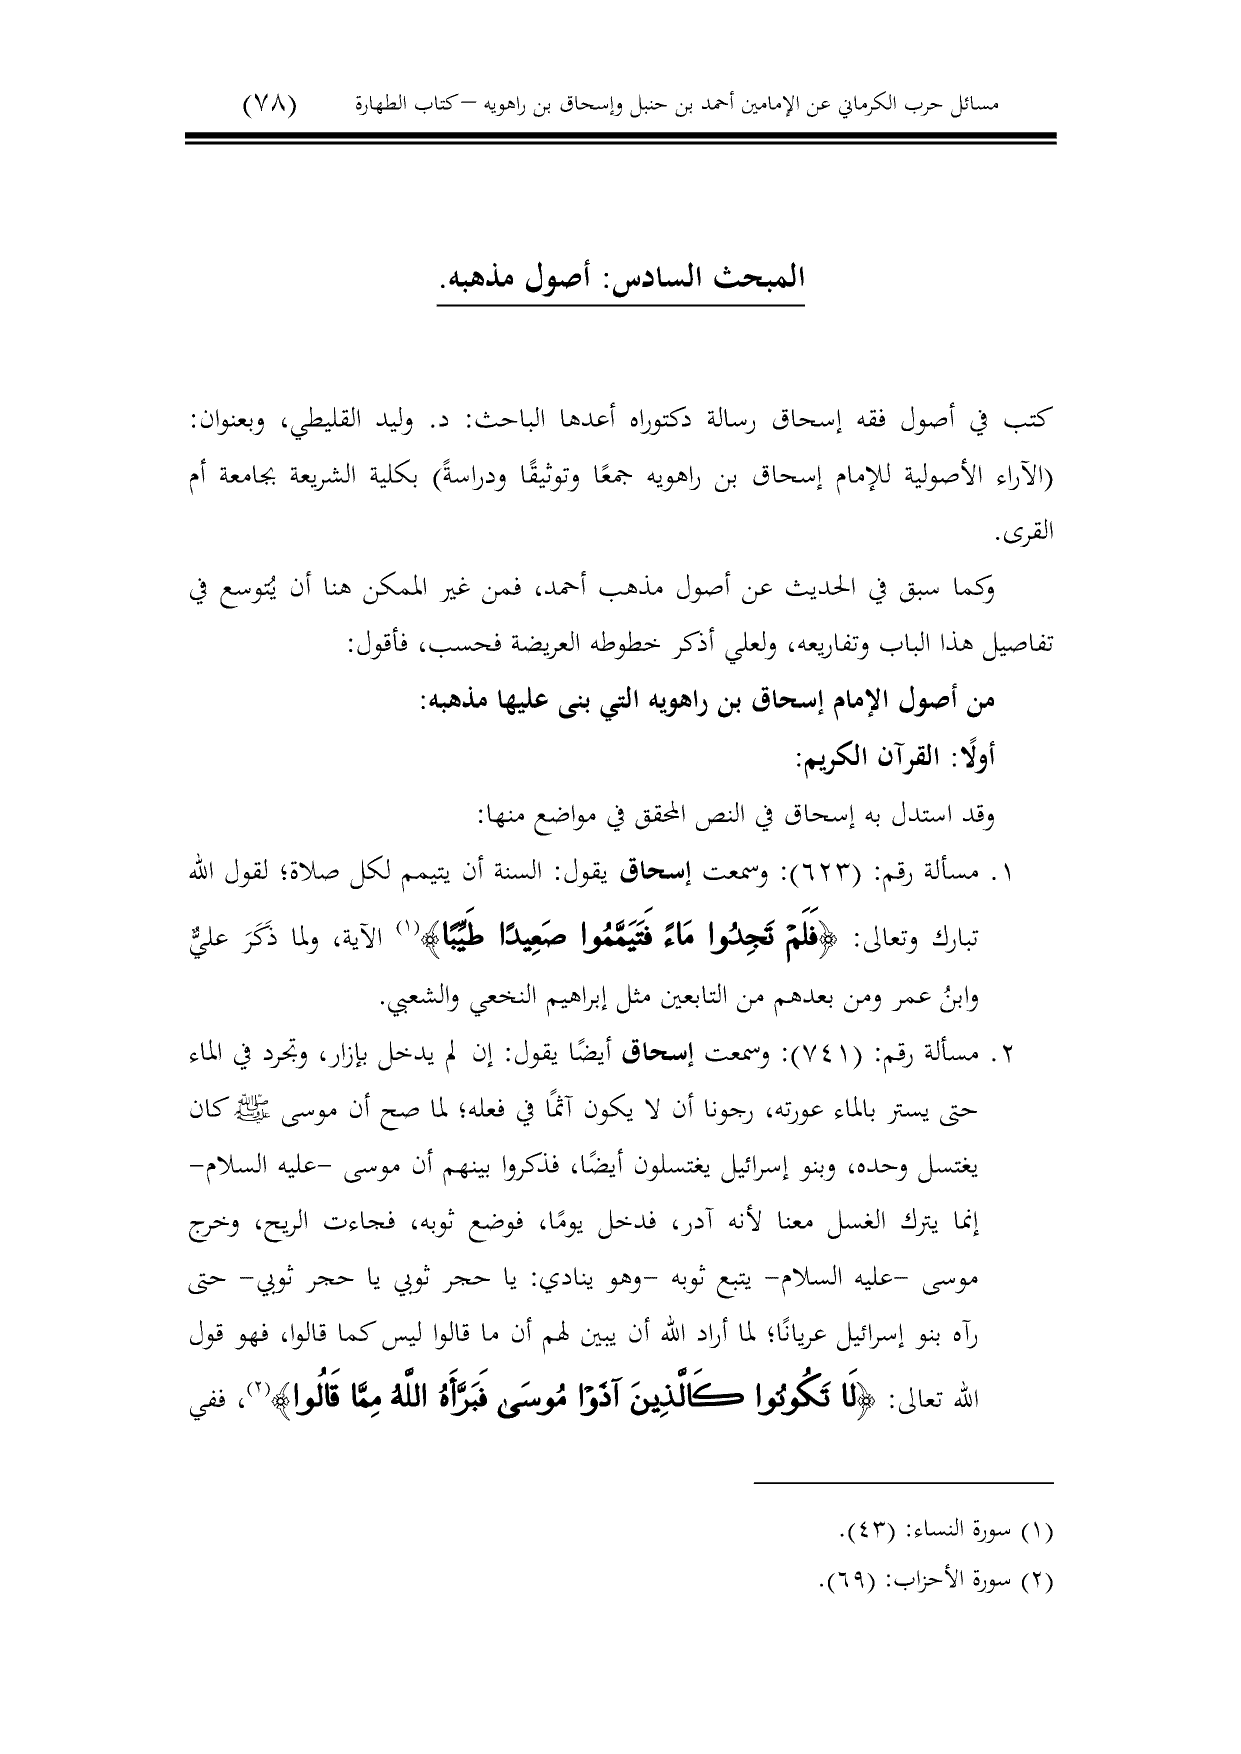 مسائل حرب الكرماني عن الإمامين أحمد بن حنبل وإسحاق بن راهويه –كتاب الطهارة (٧٨)
المبحث السادس: أصول مذهبه.
كتب في أصول فقه إسحاق رسالة دكتوراه أعدها الباحث: د. وليد القليطي، وبعنوان:
(الآراء الأصولية للإمام إسحاق بن راهويه جمعًا وتوثيقًا ودراسةً) بكلية الشريعة بجامعة أم
القرى.
وكما سبق في الحديث عن أصول مذهب أحمد، فمن غير الممكن هنا أن يُتوسع في
تفاصيل هذا الباب وتفاريعه، ولعلي أذكر خطوطه العريضة فحسب، فأقول:
من أصول الإمام إسحاق بن راهويه التي بنى عليها مذهبه:
أولًا: القرآن الكريم:
وقد استدل به إسحاق في النص المحقق في مواضع منها:
١. مسألة رقم: (٦٢٣): وسمعت إسحاق يقول: السنة أن يتيمم لكل صلاة؛ لقول الله
تبارك وتعالى: ﴿فَلَمْ تَجِدُوا مَاءً فَتَيَمَّمُوا صَعِيدًا طَيِّبًا﴾(١) الآية، ولما ذَكَرَ عليٌّ
وابنُ عمر ومن بعدهم من التابعين مثل إبراهيم النخعي والشعبي.
٢. مسألة رقم: (٧٤١): وسمعت إسحاق أيضًا يقول: إن لم يدخل بإزار، وتجرد في الماء
حتى يستر بالماء عورته، رجونا أن لا يكون آثمًا في فعله؛ لما صح أن موسى ﷺ كان
يغتسل وحده، وبنو إسرائيل يغتسلون أيضًا، فذكروا بينهم أن موسى –عليه السلام–
إنما يترك الغسل معنا لأنه آدر، فدخل يومًا، فوضع ثوبه، فجاءت الريح، وخرج
موسى –عليه السلام– يتبع ثوبه –وهو ينادي: يا حجر ثوبي يا حجر ثوبي– حتى
رآه بنو إسرائيل عريانًا؛ لما أراد الله أن يبين لهم أن ما قالوا ليس كما قالوا، فهو قول
الله تعالى: ﴿لَا تَكُونُوا كَالَّذِينَ آذَوْا مُوسَى فَبَرَّأَهُ اللَّهُ مِمَّا قَالُوا﴾(٢)، ففي
(١) سورة النساء: (٤٣).
(٢) سورة الأحزاب: (٦٩).